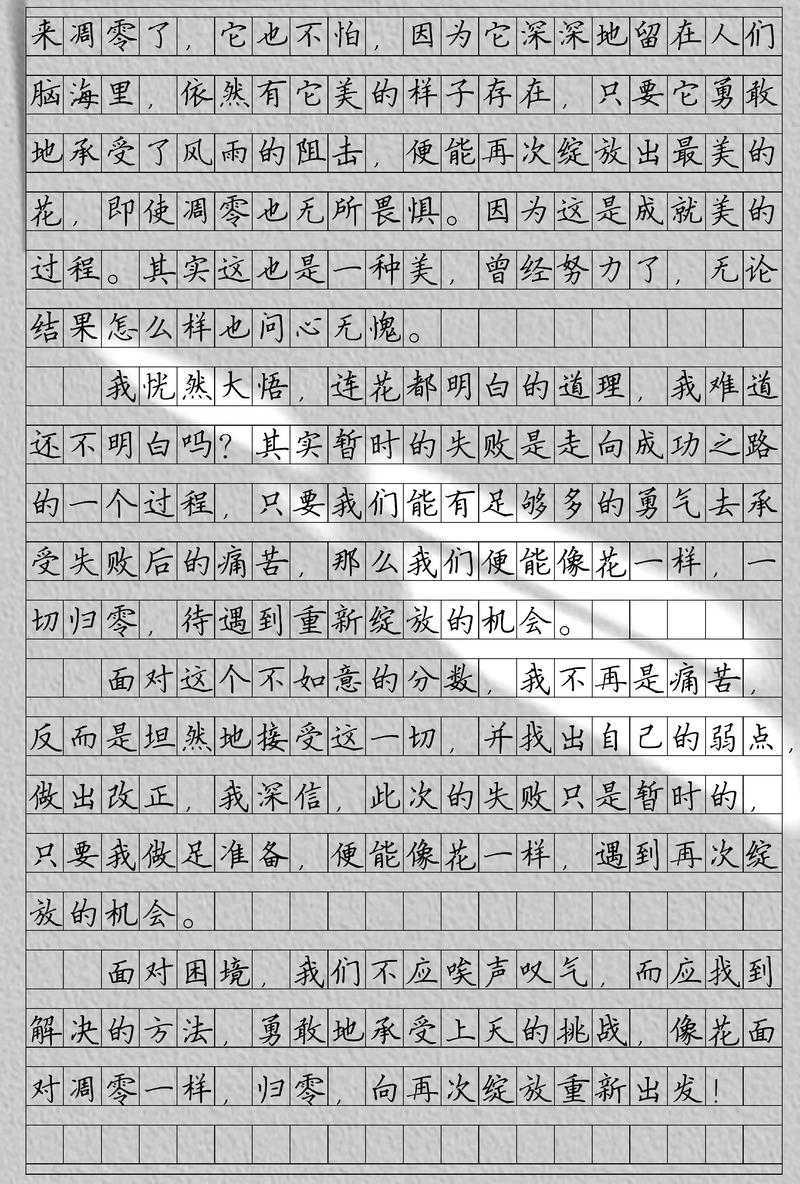 来凋零了，它也不怕，因为它深深地留在人们
脑海里，依然有它美的样子存在，只要它勇敢
地承受了风雨的阻击，便能再次绽放出最美的
花，即使凋零也无所畏惧。因为这是成就美的
过程。其实这也是一种美，曾经努力了，无论
结果怎么样也问心无愧。
我恍然大悟，连花都明白的道理，我难道
还不明白吗？其实暂时的失败是走向成功之路
的一个过程，只要我们能有足够多的勇气去承
受失败后的痛苦，那么我们便能像花一样，一
切归零，待遇到重新绽放的机会。
面对这个不如意的分数，我不再是痛苦，
反而是坦然地接受这一切，并找出自己的弱点，
做出改正，我深信，此次的失败只是暂时的，
只要我做足准备，便能像花一样，遇到再次绽
放的机会。
面对困境，我们不应唉声叹气，而应找到
解决的方法，勇敢地承受上天的挑战，像花面
对凋零一样，归零，向再次绽放重新出发！